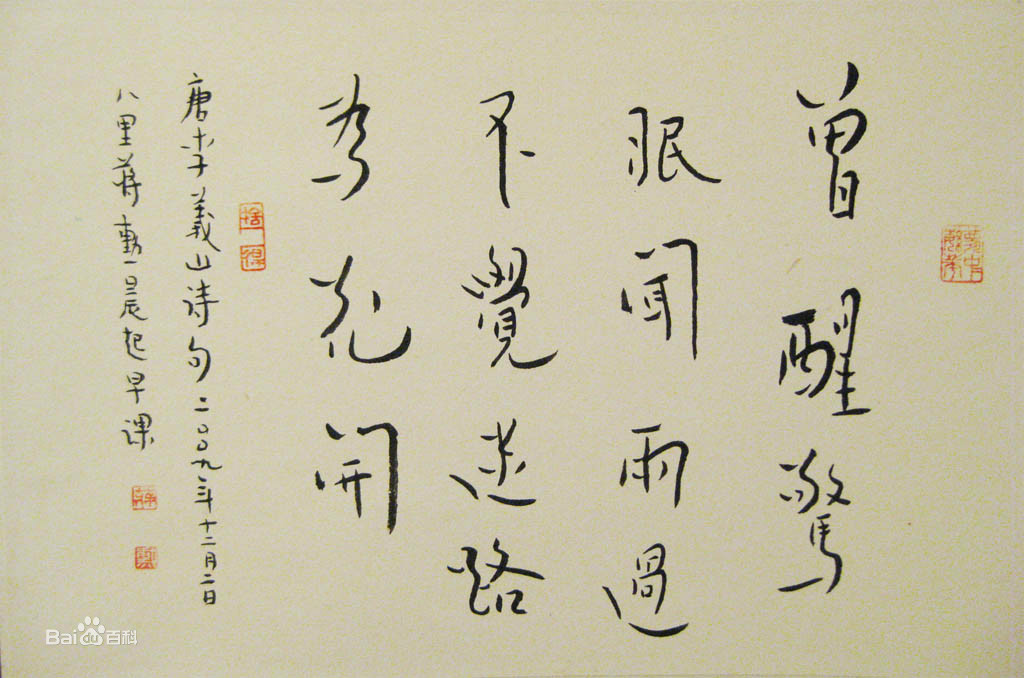 曾醒驚
眠聞雨過
不覺迷路
為花開
唐李義山詩句二〇〇九年十二月二日
八里蔣勳晨起早課
捨得
Baidu百科